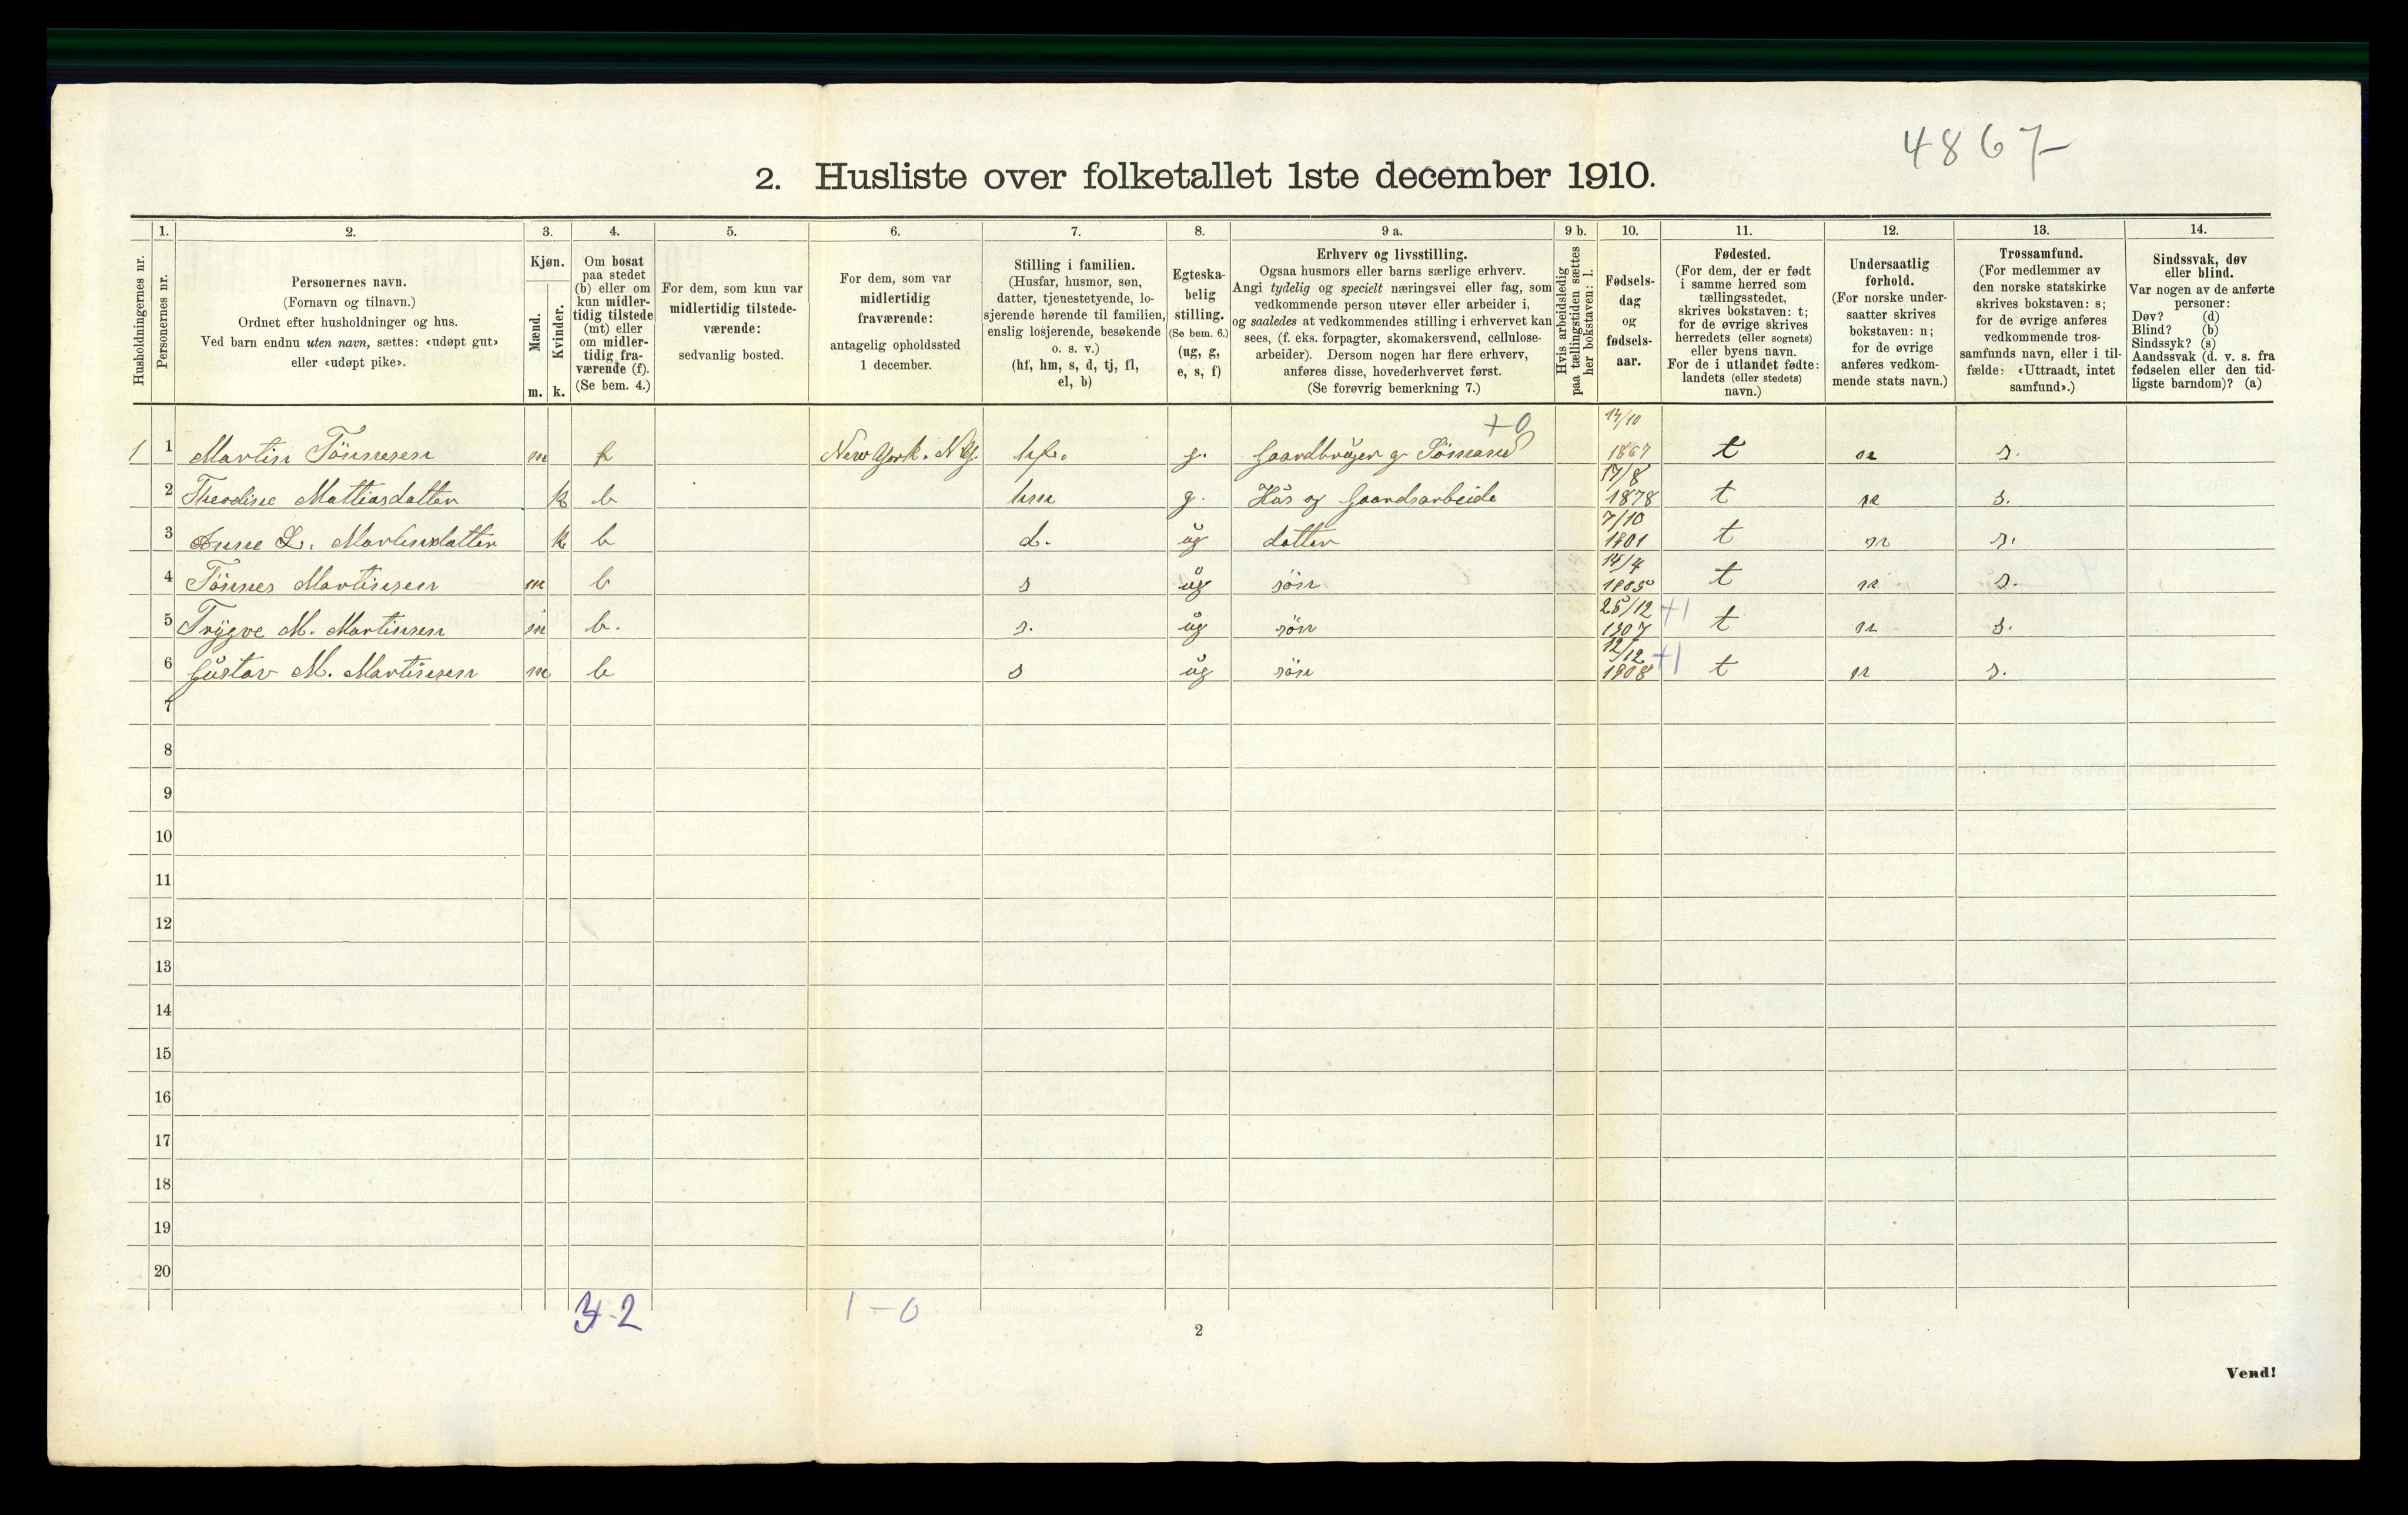 4867
2. Husliste over folketallet 1ste december 1910.
1. 2. 3. 4. 5. 6. 7. 8. 9 a. 9 b. 10. 11. 12. 13. 14.
Husholdningernes nr.
Personernes nr.
Personernes navn.
(Fornavn og tilnavn.)
Ordnet efter husholdninger og hus.
Ved barn endnu uten navn, sættes: «udøpt gut»
eller «udøpt pike».
Kjøn.
Mænd.
Kvinder.
m. k.
Om bosat
paa stedet
(b) eller om
kun midler-
tidig tilstede
(mt) eller
om midler-
tidig fra-
værende (f).
(Se bem. 4.)
For dem, som kun var
midlertidig tilstede-
værende:
sedvanlig bosted.
For dem, som var
midlertidig
fraværende:
antagelig opholdssted
1 december.
Stilling i familien.
(Husfar, husmor, søn,
datter, tjenestetyende, lo-
sjerende hørende til familien,
enslig losjerende, besøkende
o. s. v.)
(hf, hm, s, d, tj, fl,
el, b)
Egteska-
belig
stilling.
(Se bem. 6.)
(ug, g,
e, s, f)
Erhverv og livsstilling.
Ogsaa husmors eller barns særlige erhverv.
Angi tydelig og specielt næringsvei eller fag, som
vedkommende person utøver eller arbeider i,
og saaledes at vedkommendes stilling i erhvervet kan
sees, (f. eks. forpagter, skomakersvend, cellulose-
arbeider). Dersom nogen har flere erhverv,
anføres disse, hovederhvervet først.
(Se forøvrig bemerkning 7.)
Hvis arbeidsledig
paa tællingstiden sættes
her bokstaven: l.
Fødsels-
dag
og
fødsels-
aar.
Fødested.
(For dem, der er født
i samme herred som
tællingsstedet,
skrives bokstaven: t;
for de øvrige skrives
herredets (eller sognets)
eller byens navn.
For de i utlandet fødte:
landets (eller stedets)
navn.)
Undersaatlig
forhold.
(For norske under-
saatter skrives
bokstaven: n;
for de øvrige
anføres vedkom-
mende stats navn.)
Trossamfund.
(For medlemmer av
den norske statskirke
skrives bokstaven: s;
for de øvrige anføres
vedkommende tros-
samfunds navn, eller i til-
fælde: «Uttraadt, intet
samfund».)
Sindssvak, døv
eller blind.
Var nogen av de anførte
personer:
Døv? (d)
Blind? (b)
Sindssyk? (s)
Aandssvak (d. v. s. fra
fødselen eller den tid-
ligste barndom)? (a)
+0 14/10
1 1 Martin Tönnesen m f New York. N.Y. hf. g. Gaardbruger g Sömand 1867 t n s.
17/8
2 Theodine Mattiasdatter k b hm g. Hus og Gaardsarbeide 1878 t n s.
7/10
3 Anne L. Martinsdatter k b d. ug datter 1901 t n s.
14/4
4 Tönnes Martinsen m b s ug sön 1905 t n s.
25/12 +1
5 Trygve M. Martinsen m b. s. ug sön 1907 t n s.
12/12 +1
6 Gustav M. Martinsen m b s ug sön 1908 t n s.
7
8
9
10
11
12
13
14
15
16
17
18
19
20
3-2 1-0
2
Vend!